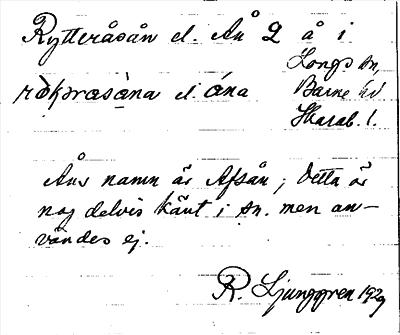 Rytteråsån el. Ån 2 å i
Longs sn.
Barne hd
Skarab. l.
el ána
Åns namn är Afsån; detta är
nog delvis känt i sn. men an-
vändes ej.
R. Ljunggren 1929